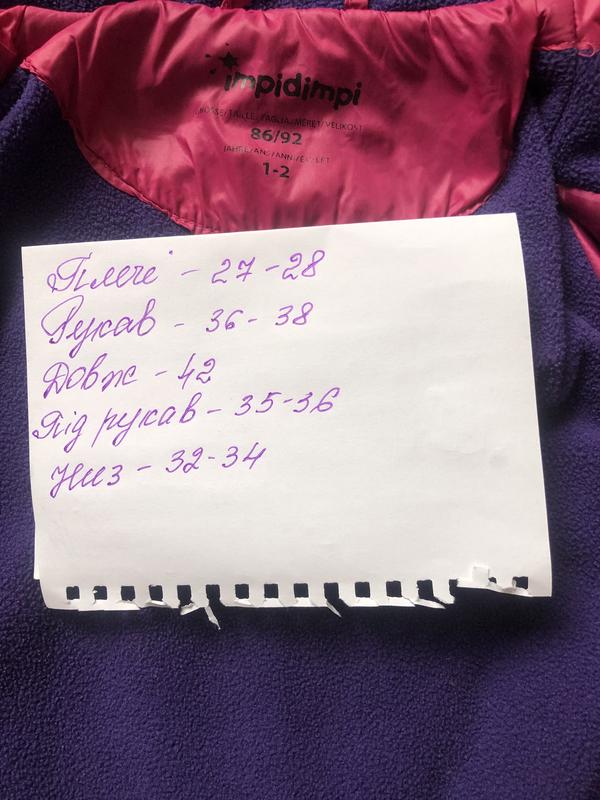 impidimpi
GRÖSSE/TAILLE/TAGLIA/MÉRET/VELIKOST
86/92
JAHRE/ANS/ANNI/ÉV/LET
1-2
Плечі - 27-28
Рукав - 36-38
Довж - 42
Під рукав - 35-36
Низ - 32-34